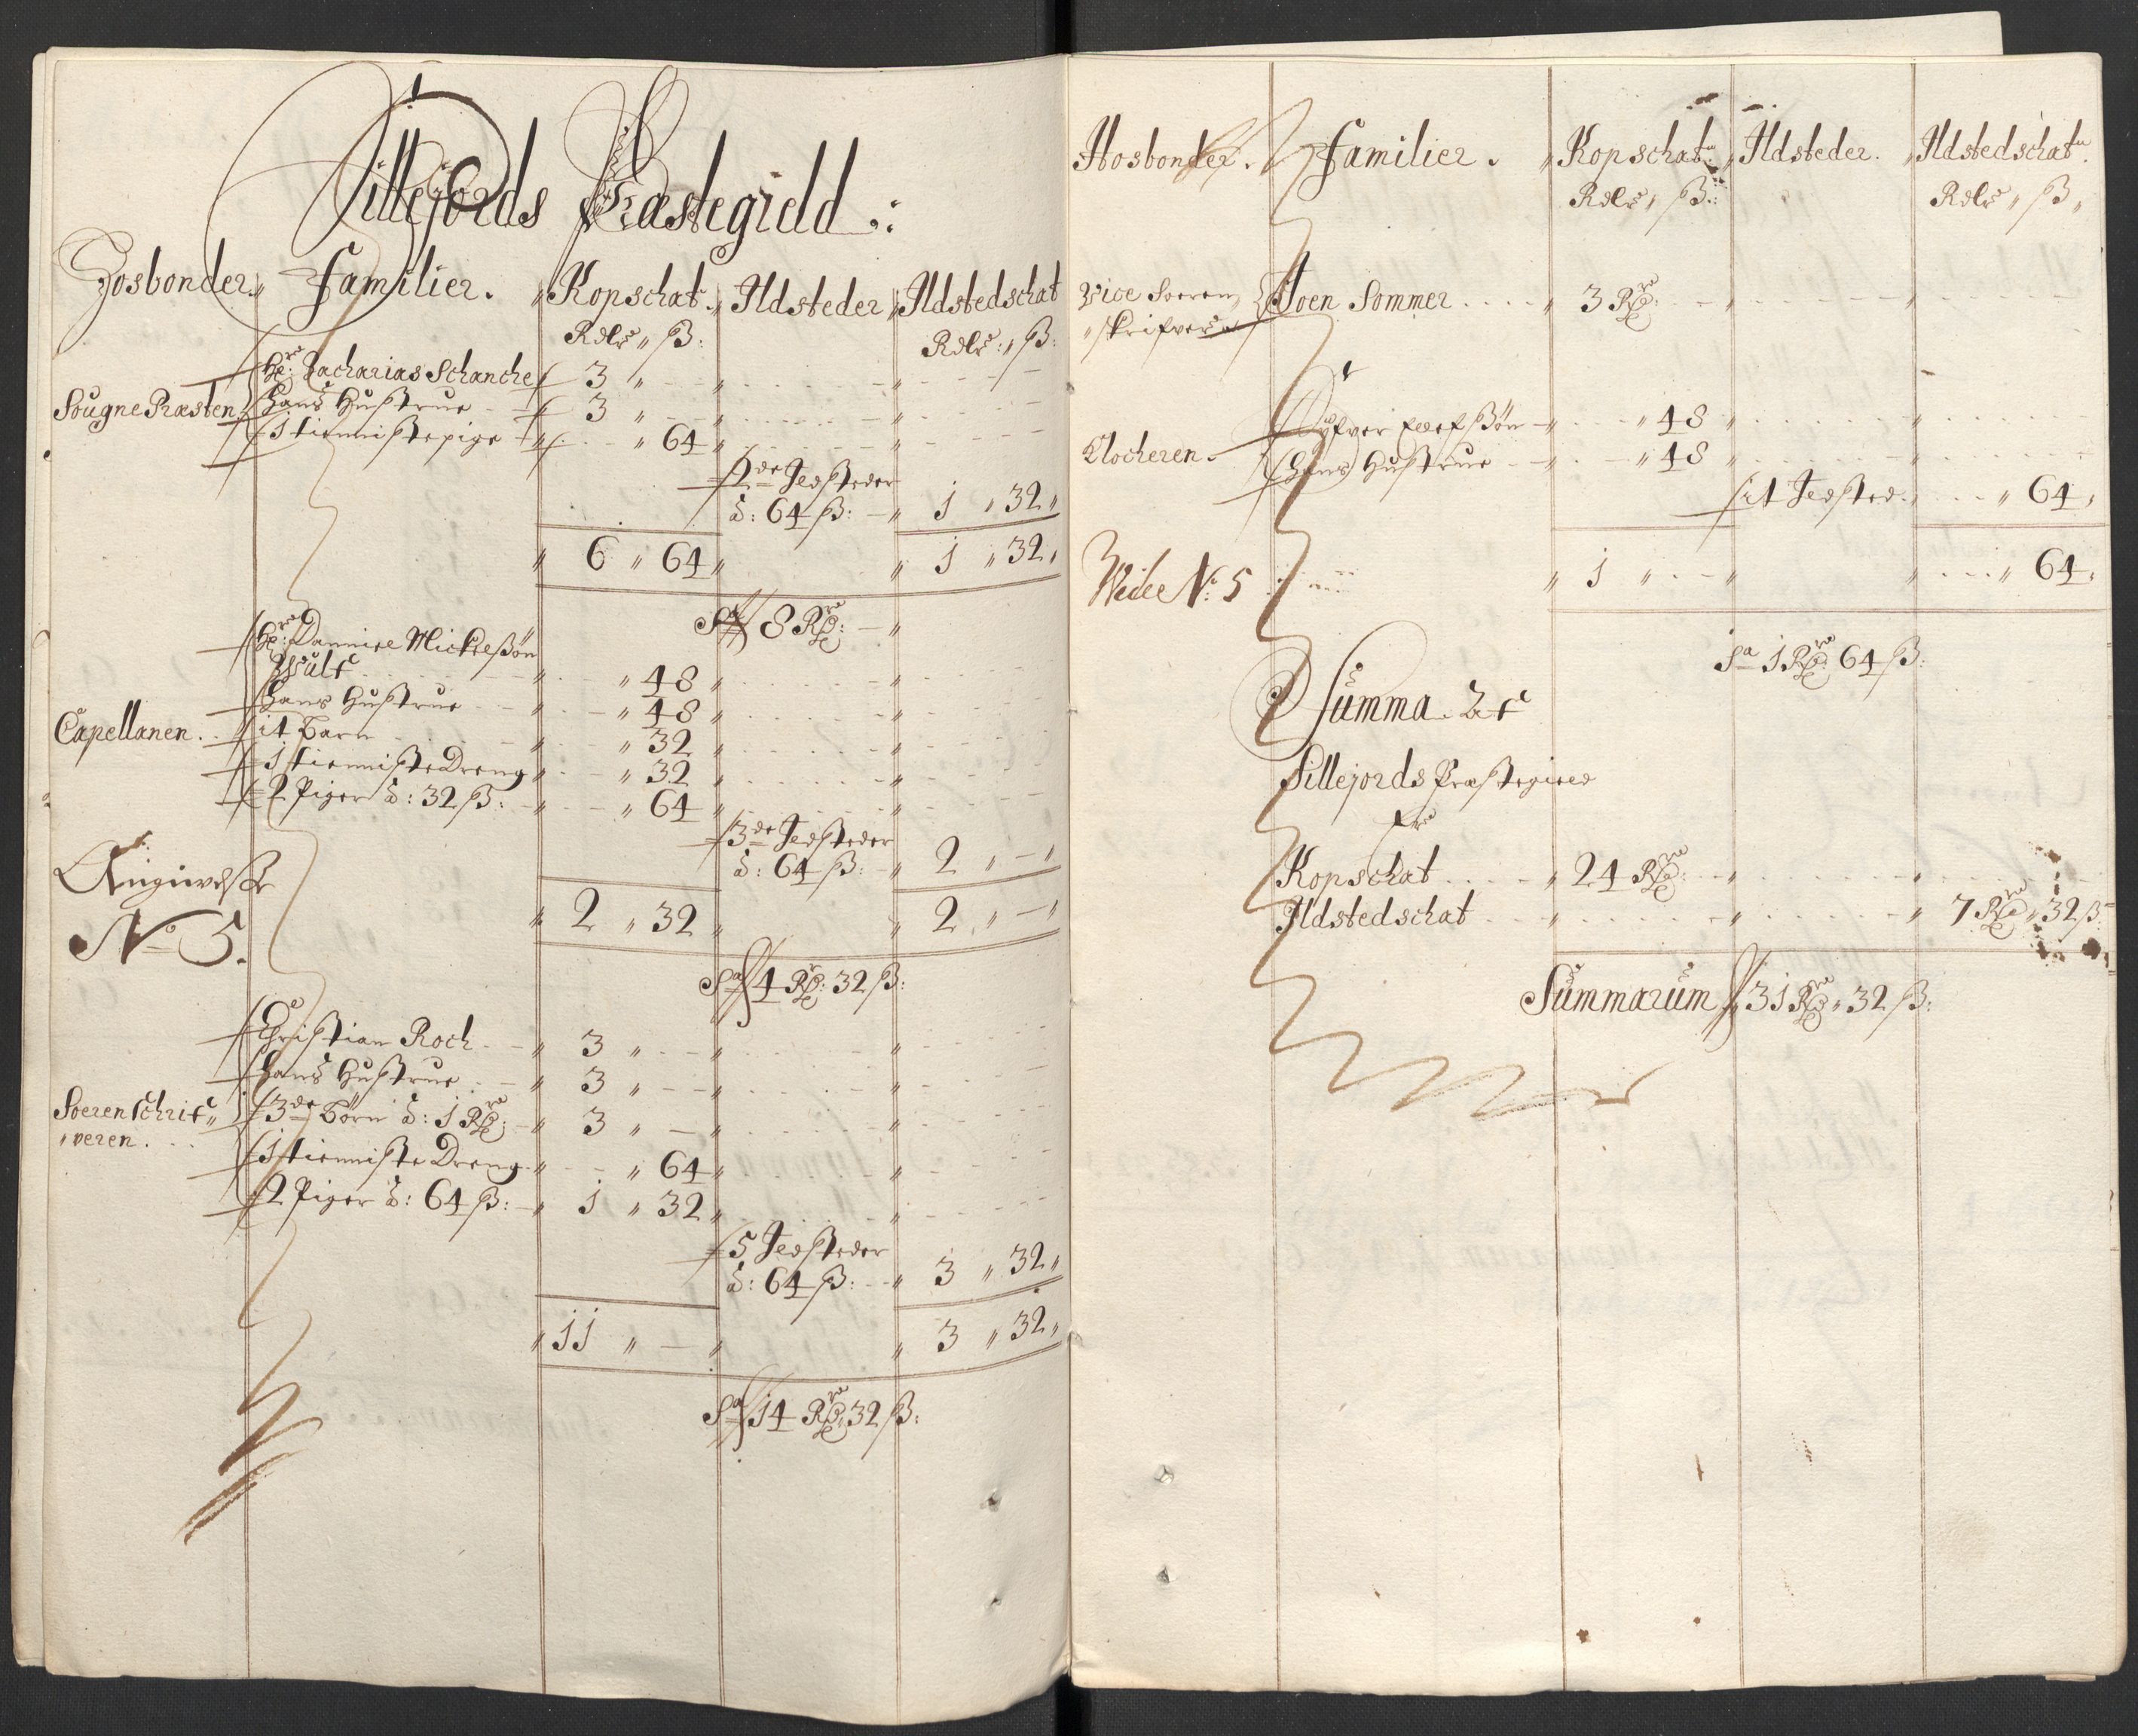 Sillejords Præstegield.
Hosbonder. Familier. Kopschat. Ildsteder Ildstedschat
Rdlr ß: Rdlr: ß:
Hr: Zacharias Schanche 3
Sougne Præsten. Hans Hustrue 3
1 tienniste pige 64
2de Ildsteder
à: 64 ß: 1 32
6 64 1 32
Sa 8 Rdr:
Hr: Danniel Mickelßøn
Wulf 48
Hans Hustrue 48
Capellanen. it Barn 32
1 tienniste Dreng 32
2 Piger à: 32 ß: 64
3de Ildsteder
à: 64 ß: 2 -
Angiwelse
No 5. 2 32 2 -
Sa 4 Rdr: 32 ß:
Christian Roch 3
Hans Hustrue 3
Soerenschrif 3de Børn à: 1 Rdr: 3 -
veren. 1 tienniste Dreng 64
2 Piger à: 64 ß: 1 32
5 Ildsteder
à: 64 ß: 3 32
11 - 3 32
Sa 14 Rdr 32 ß:
Hosbonder. Familier. Kopschat. Ildsteder. Ildstedschat.
Rdlr ß: Rdlr ß
Vice Soeren Joen Sommer 3 Rdr:
skrifver
48
Clocheren. Hans Hustrue 48
it Ildsted. 64
Widee No: 5 1 64
Sa 1 Rdr: 64 ß:
Summa. 2 af
Sillejords Præstegield
Er
Kopschat 24 Rdr:
Ildstedschat 7 Rdr 32 ß:
Summarum 31 Rdr 32 ß: